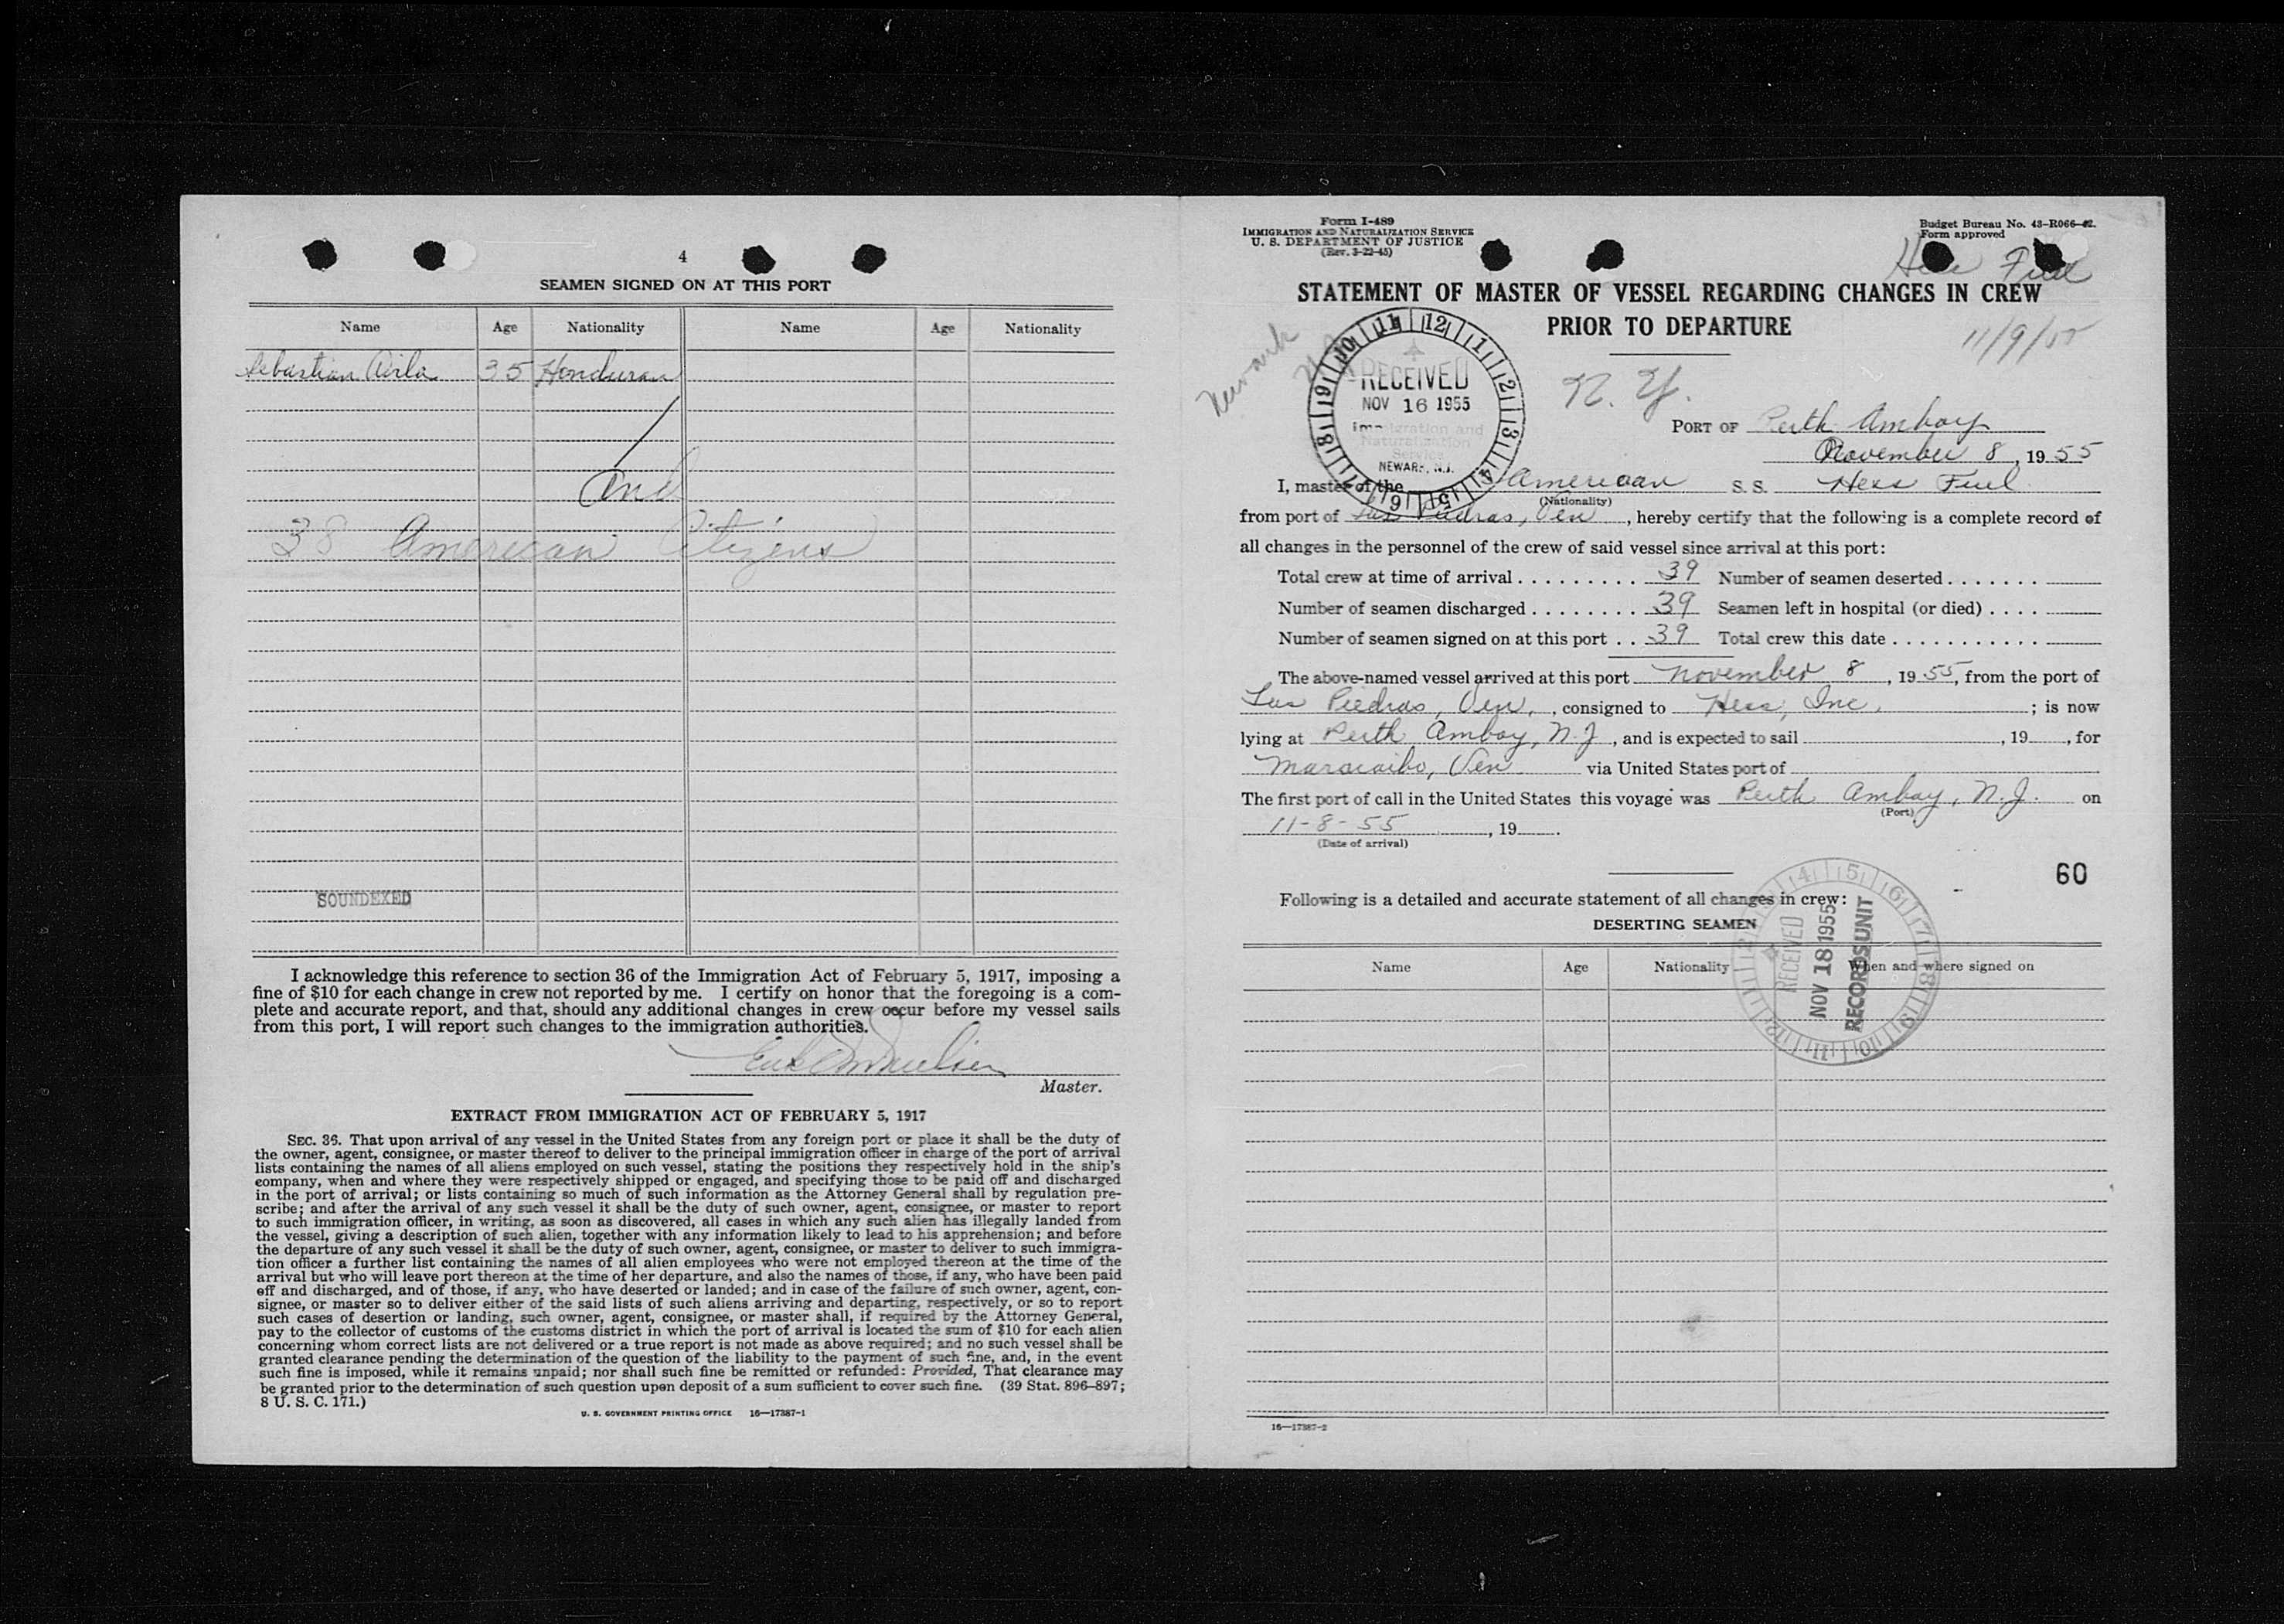 4
SEAMEN SIGNED ON AT THIS PORT
Name Age Nationality Name Age Nationality
Sebastian 35 Honduran
and
38 American Citizens
SOUNDEXED
I acknowledge this reference to section 36 of the Immigration Act of February 5, 1917, imposing a
fine of $10 for each change in crew not reported by me. I certify on honor that the foregoing is a com-
plete and accurate report, and that, should any additional changes in crew occur before my vessel sails
from this port, I will report such changes to the immigration authorities.
Master.
EXTRACT FROM IMMIGRATION ACT OF FEBRUARY 5, 1917
SEC. 36. That upon arrival of any vessel in the United States from any foreign port or place it shall be the duty of
the owner, agent, consignee, or master thereof to deliver to the principal immigration officer in charge of the port of arrival
lists containing the names of all aliens employed on such vessel, stating the positions they respectively hold in the ship's
company, when and where they were respectively shipped or engaged, and specifying those to be paid off and discharged
in the port of arrival; or lists containing so much of such information as the Attorney General shall by regulation pre-
scribe; and after the arrival of any such vessel it shall be the duty of such owner, agent, consignee, or master to report
to such immigration officer, in writing, as soon as discovered, all cases in which any such alien has illegally landed from
the vessel, giving a description of such alien, together with any information likely to lead to his apprehension; and before
the departure of any such vessel it shall be the duty of such owner, agent, consignee, or master to deliver to such immigra-
tion officer a further list containing the names of all alien employees who were not employed thereon at the time of the
arrival but who will leave port thereon at the time of her departure, and also the names of those, if any, who have been paid
off and discharged, and of those, if any, who have deserted or landed; and in case of the failure of such owner, agent, con-
signee, or master so to deliver either of the said lists of such aliens arriving and departing, respectively, or so to report
such cases of desertion or landing, such owner, agent, consignee, or master shall, if required by the Attorney General,
pay to the collector of customs of the customs district in which the port of arrival is located the sum of $10 for each alien
concerning whom correct lists are not delivered or a true report is not made as above required; and no such vessel shall be
granted clearance pending the determination of the question of the liability to the payment of such fine, and, in the event
such fine is imposed, while it remains unpaid; nor shall such fine be remitted or refunded: Provided, That clearance may
be granted prior to the determination of such question upon deposit of a sum sufficient to cover such fine. (39 Stat. 896–897;
8 U. S. C. 171.)
U. S. GOVERNMENT PRINTING OFFICE 16—17387-1
Form I-489
IMMIGRATION AND NATURALIZATION SERVICE
U. S. DEPARTMENT OF JUSTICE
(Rev. 3-22-45)
Budget Bureau No. 43-R066-42.
Form approved
Hess Fuel
STATEMENT OF MASTER OF VESSEL REGARDING CHANGES IN CREW
PRIOR TO DEPARTURE
11/9/55
Newark
N. Y.
RECEIVED
NOV 16 1955
Immigration and
Naturalization
Service
NEWARK, N.J.
PORT OF Perth Amboy
November 8, 1955
I, master of the American S. S. Hess Fuel
(Nationality)
from port of Las Piedras, Ven, hereby certify that the following is a complete record of
all changes in the personnel of the crew of said vessel since arrival at this port:
Total crew at time of arrival . . . . . . . . . 39 Number of seamen deserted . . . . . . .
Number of seamen discharged . . . . . . . . 39 Seamen left in hospital (or died) . . . .
Number of seamen signed on at this port . . 39 Total crew this date . . . . . . . . . . .
The above-named vessel arrived at this port November 8, 1955, from the port of
Las Piedras, Ven., consigned to Hess, Inc. ; is now
lying at Perth Amboy, N. J, and is expected to sail , 19 , for
Maracaibo, Ven via United States port of
The first port of call in the United States this voyage was Perth Amboy, N. J. on
(Port)
11-8-55 , 19 .
(Date of arrival)
60
Following is a detailed and accurate statement of all changes in crew:
DESERTING SEAMEN
RECEIVED
NOV 18 1955
RECORDS UNIT
Name Age Nationality When and where signed on
16—17387-2